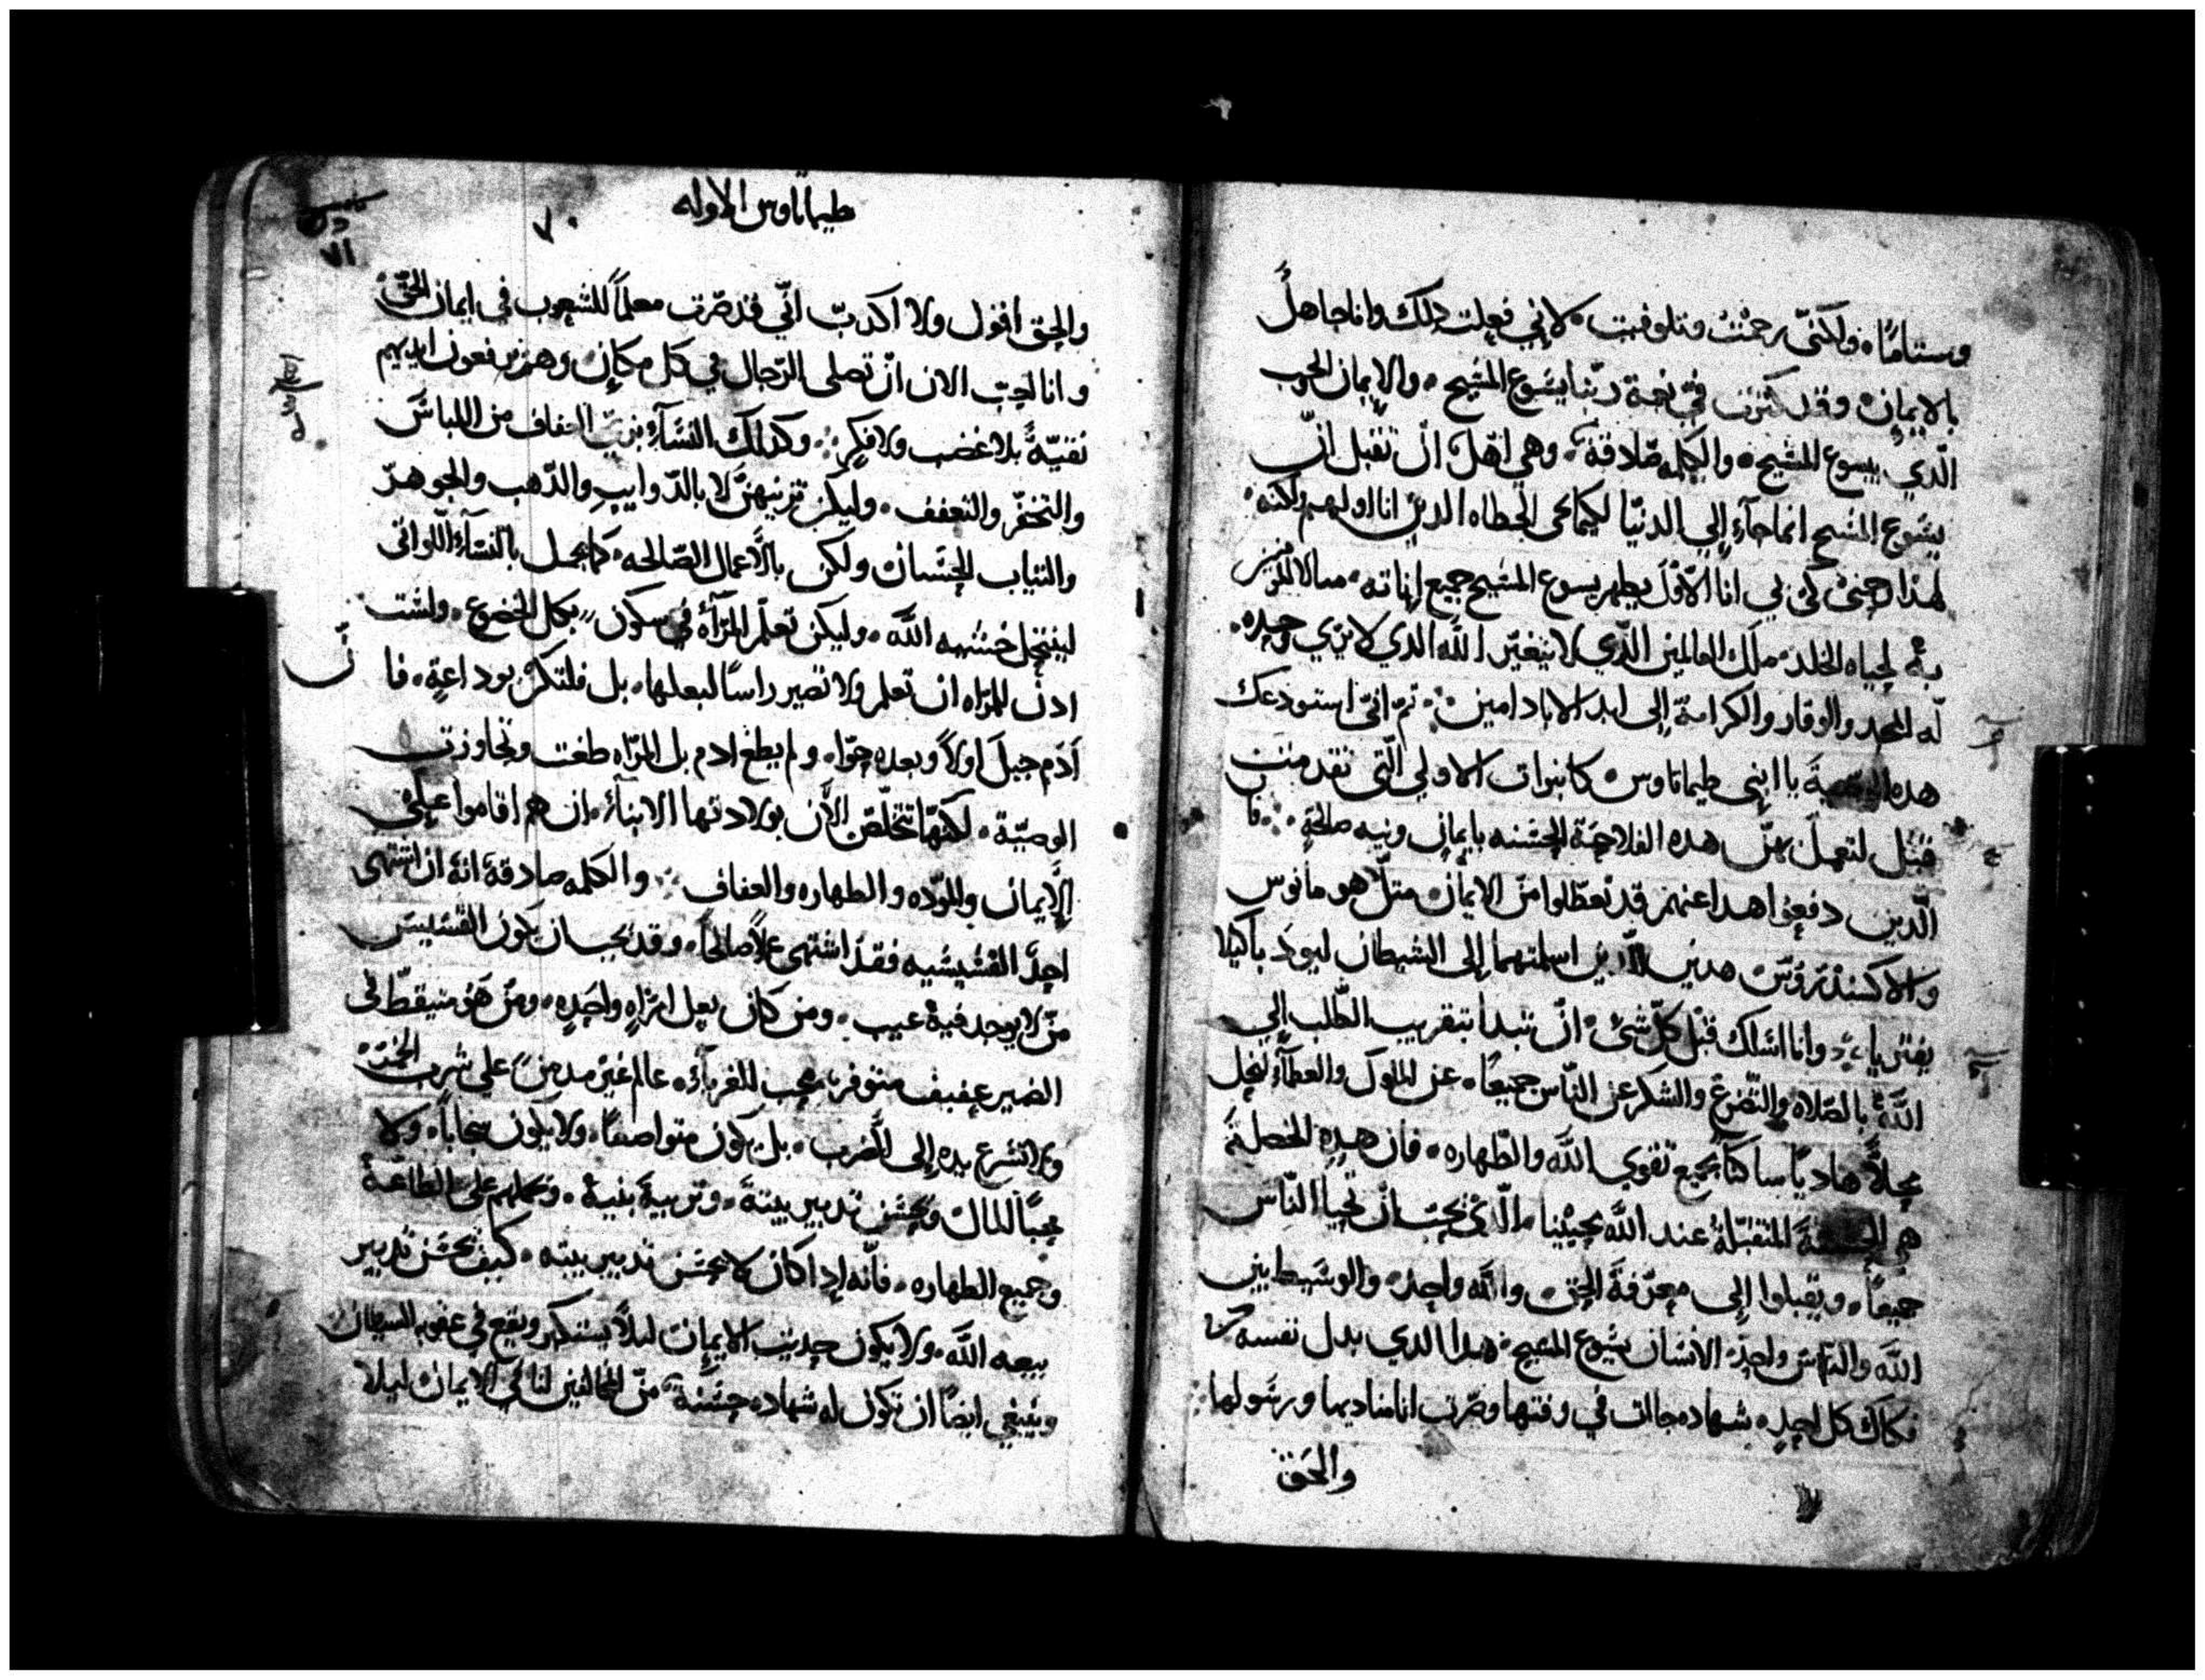 وستاما ولكني رحمت وتلوفيت لاني فعلت دلك وانا جاهلً
بالايمان وقد كثرت في نعمة ربنا يسوع المسيح والايمان الحب
الدي بيسوع المسيح والكلمه صادقة وهي اهل ان تقبل ان
يسوع المسيح انما جآء إلي الدنيا لكيما يحي الخطاه الدين انا اولهم ولكنه
لهذا حنن كي بي انا الاول يظهر يسوع المسيح جميع اناته مثالا للمومنين
به لحياه الخلد ملك العالمين الدي لا يتغير الله الدي لا يري وحيده
له المجد والوقار والكرامة إلى ابد الاباد امين ثم انني استودعك
هده الوصية يا ابني طيماتاوس كالنبوات الاولي التي تقدمت
قبل لتعمل بهن هده الفلاحة الحسنه بايمان ونيه صالحة فا
الدين دفعوا هدا عنهم قد تعطلوا من الايمان مثل هو مانوس
والاكسندروس هدين الدين اسلمتهما إلى الشيطان ليودبا كيلا
يفتريا وانا اسلك قبل كل شئ ان تبدا بتقريب الطلب إلي
الله بالصلاه والتضرع والشكر عن الناس جميعا عن الملوك والعظمآء لنحل
محلاً هاديا ساكنا بجميع تقوي الله والطهاره فان هده الخصلة
هي الحسنة المتقبلة عند الله محيينا الدي يحب ان تحيا الناس
جميعاً ويقبلوا إلى معرفة الحق والله واحد والوسيط بين
الله والناس واحد الانسان يسوع المسيح هدا الدي بدل نفسه
فكاك كل احد شهاده جاات في وقتها وصرت انا مناديها ورسولها
والحق
طيماتاوس الاوله
٧٠
والحق اقول ولا اكدب اني قد صرت معلماً للشعوب في ايمان الحق
وانا احب الان ان تصلى الرجال في كل مكان وهم يرفعون ايديهم
نقيّةً بلا غضب ولا فكر وكدلك النسآء بزي العفاف من اللباس
والتخفر والتعفف وليكن تزينهن لا بالدوايب والدهب والجوهر
والثياب الحسان ولكن بالاعمال الصالحه كما يجمل بالنسآء اللواتي
لينتحل خشيه الله وليكن تعلم المرآة في سكون بكل الخضوع ولست
ادن للمراه ان تعلم ولا تصير راسا لبعلها بل فلتكن بوداعة فا ن
آدم جبل اولاً وبعده حوا ولم يطغ ادم بل المراه طغت وتجاوزت
الوصيّة لكنها تتخلص الآن بولادتها الابنآء ان هم اقاموا على
الإيمان والموده والطهاره والعفاف والكلمه صادقة انه ان اشتهى
احد القسيسيه فقد اشتهى عملاً صالحاً وقد يجب ان يكون القسيس
من لا يوجد فيه عيب ومن كان بعل امراه واحده ومن هو متيقظ في
الضمير عفيف متوفر محب للغربآء عالم غير مدمن على شرب الخمر
ولا تشرع يده إلى الضرب بل يكون متواضعاً ولا يكون سحاباً ولا
محبا للمال ويحسن تدبير بيته وتربية بنيه ويحملهم على الطاعة
وجميع الطهاره فانه إدا كان لا يحسن تدبير بيته كيف يحسن تدبير
بيعه الله ولا يكون حديث الايمان ليلاً يستكبر ويقع في عقوبه الشيطان
وينبغي ايضًا ان تكون له شهاده حسنة من المخالفين لنا في الايمان ليلا